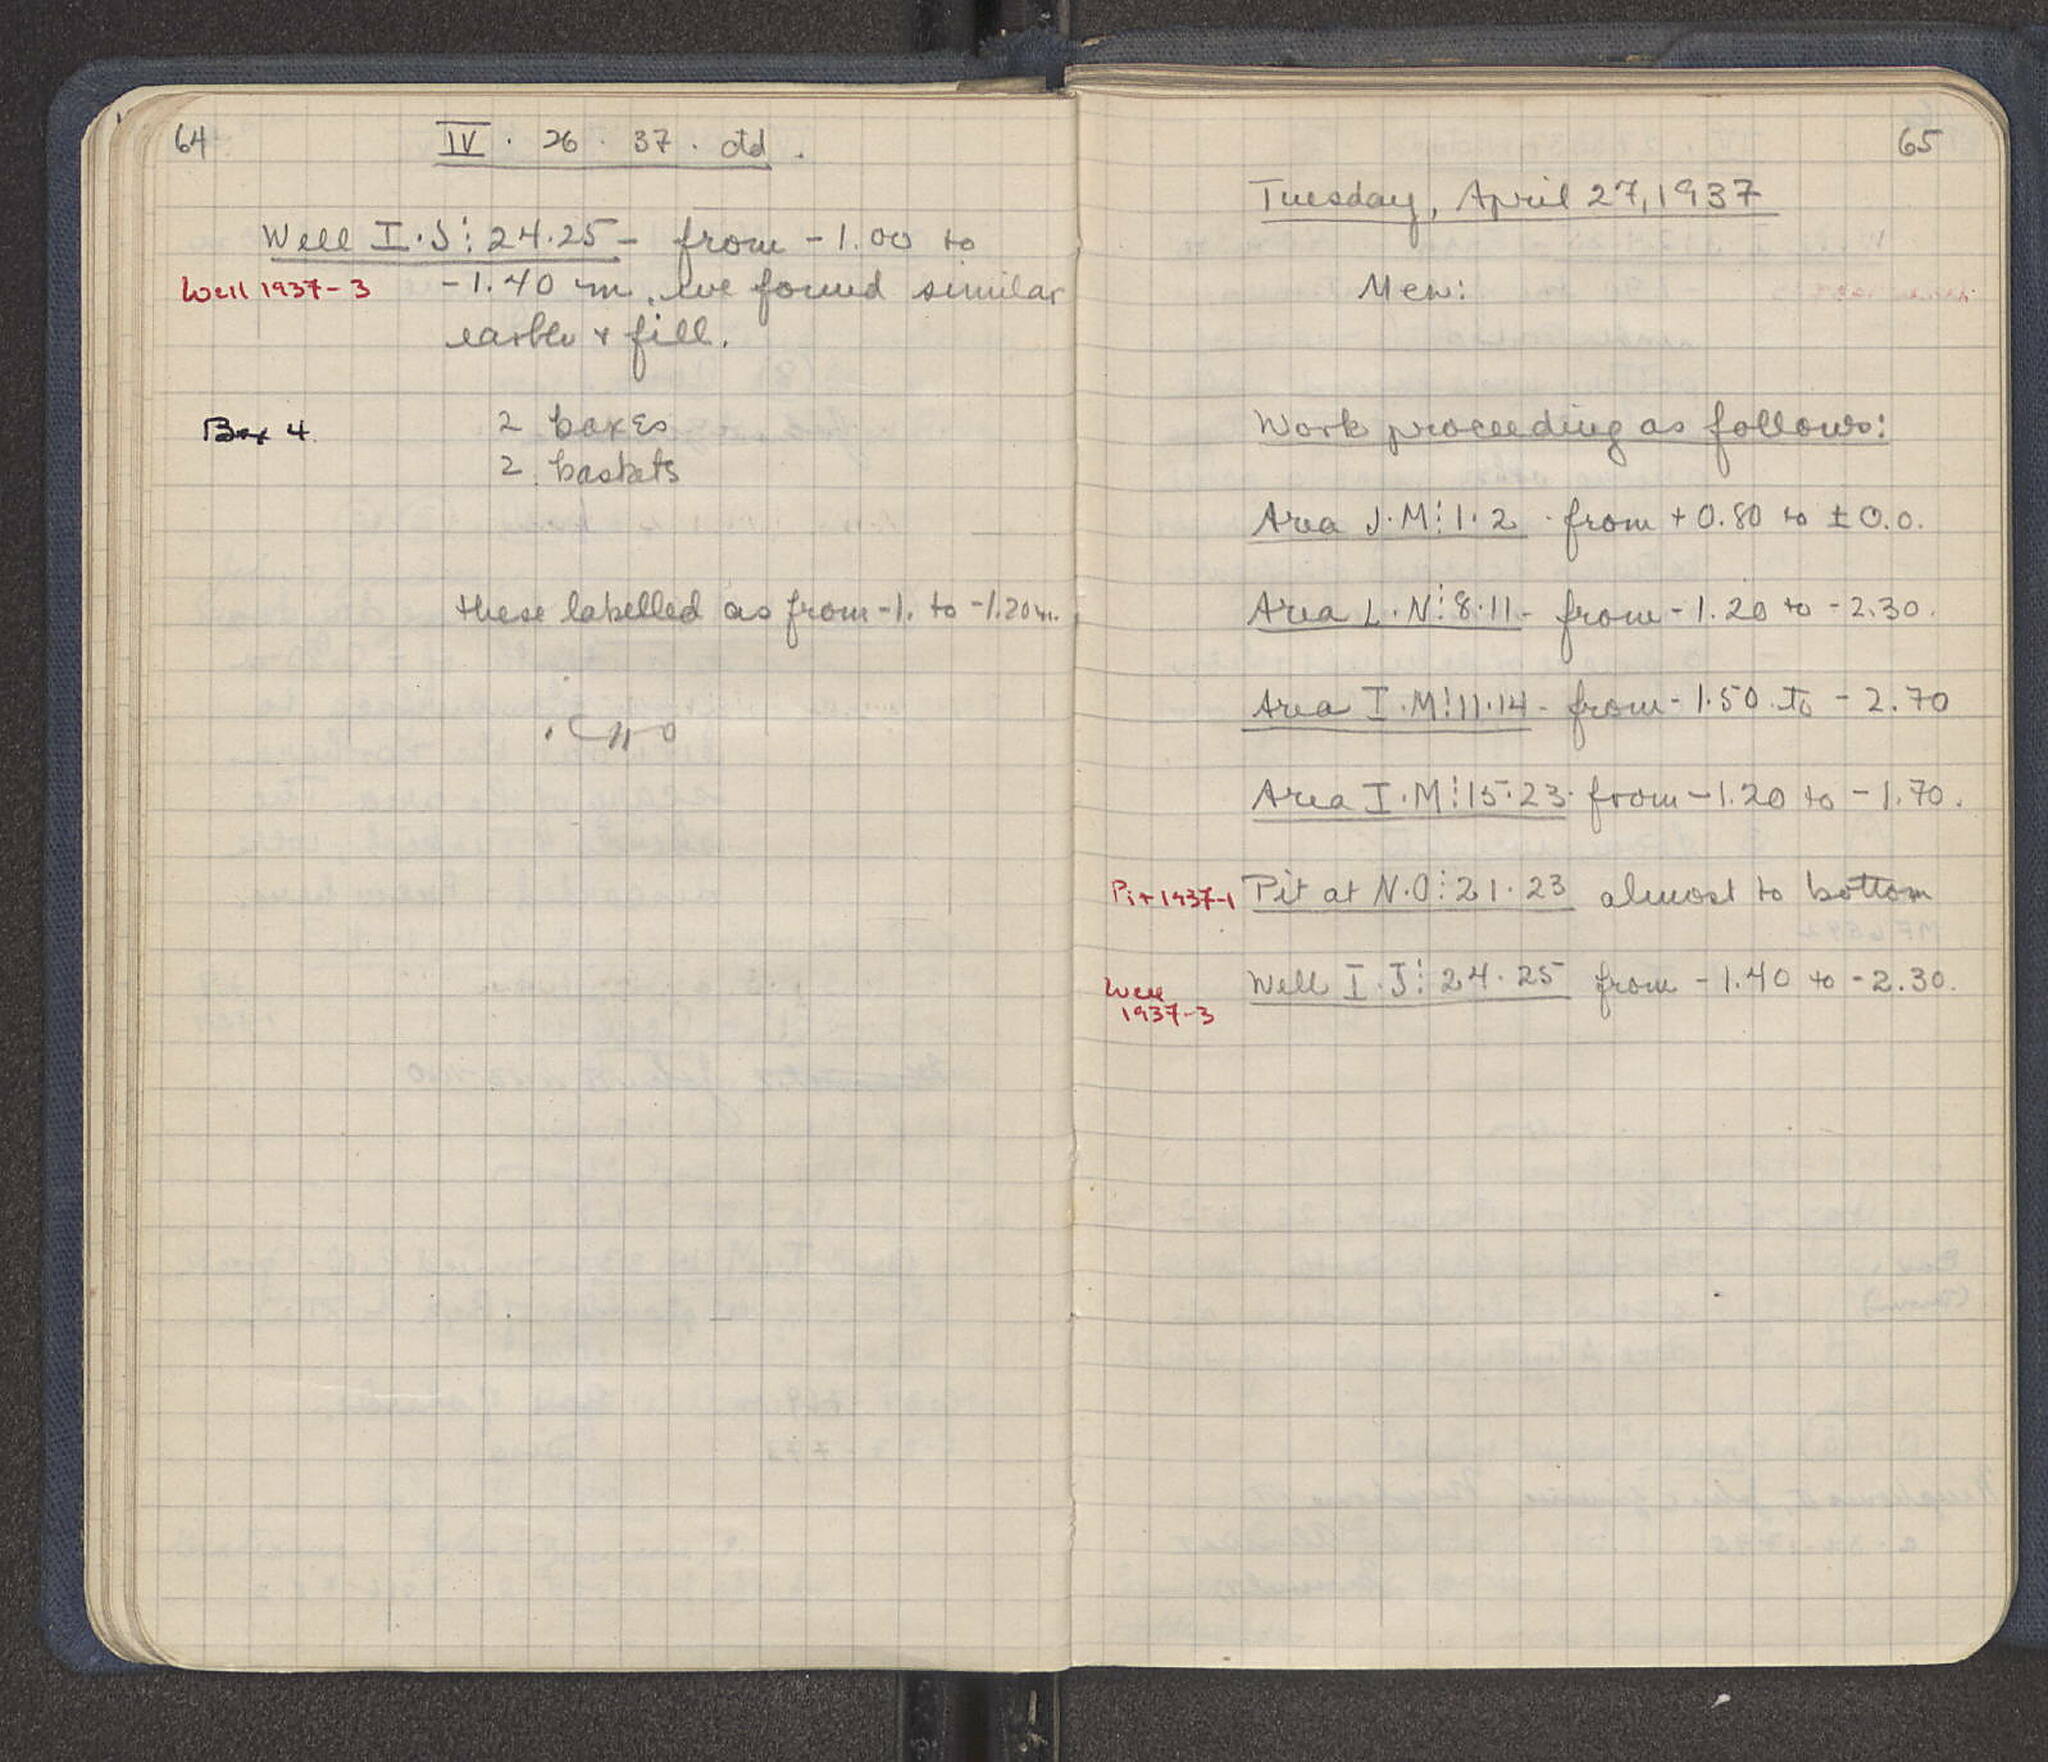 64
IV . 26 . 37 . ctd .
Well I·J⋮24·25 – from –1.00 to
Well 1937-3
–1.40 m, we found similar
earth & fill.
Box 4
2 boxes
2 baskets
these labelled as from –1. to –1.20 m.
65
Tuesday, April 27, 1937
Men:
Work proceeding as follows:
Area J·M⋮1·2 · from +0.80 to ±0.0.
Area L·N⋮8·11 – from –1.20 to –2.30.
Area I·M⋮11·14 – from –1.50 to –2.70
Area I·M⋮15·23 · from –1.20 to –1.70.
Pit 1937-1 Pit at N·O⋮21·23 almost to bottom
Well I·J⋮24·25 from –1.40 to –2.30.
Well
1937-3